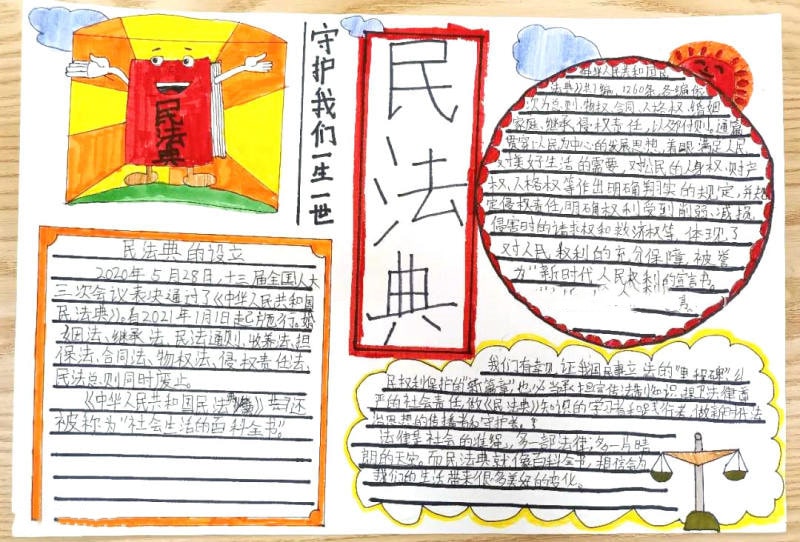 民法典
守护我们一生一世
民法典
民法典的设立
2020年5月28日,十三届全国人大
三次会议表决通过了《中华人民共和国
民法典》。自2021年1月1日起施行。婚
姻法、继承法、民法通则、收养法、担
保法、合同法、物权法、侵权责任法、
民法总则同时废止。
《中华人民共和国民法典》
被称为“社会生活的百科全书”。
中华人民共和国民
法典》共7编、1260条,各编依
次为总则、物权、合同、人格权、婚姻
家庭、继承、侵权责任,以及附则。通篇
贯穿以人民为中心的发展思想,着眼满足人民
对美好生活的需要,对公民的人身权、财产
权、人格权等作出明确翔实的规定,并规
定侵权责任,明确权利受到削弱、减损、
侵害时的请求权和救济权等,体现了
对人民权利的充分保障,被誉
为“新时代人民权利的宣言书。
我们有幸见证我国民事立法的“里程碑”公
民权利保护的“新篇章”也必当承担宣传法制知识,捍卫法律尊
严的社会责任,做《民法典》知识的学习者和践行者,做新时代法
治思想的传播者和守护者,
法律是社会的准绳,多一部法律,多一片晴
朗的天空。而民法典就像百科全书,相信会为
我们的生活带来很多美好的变化。